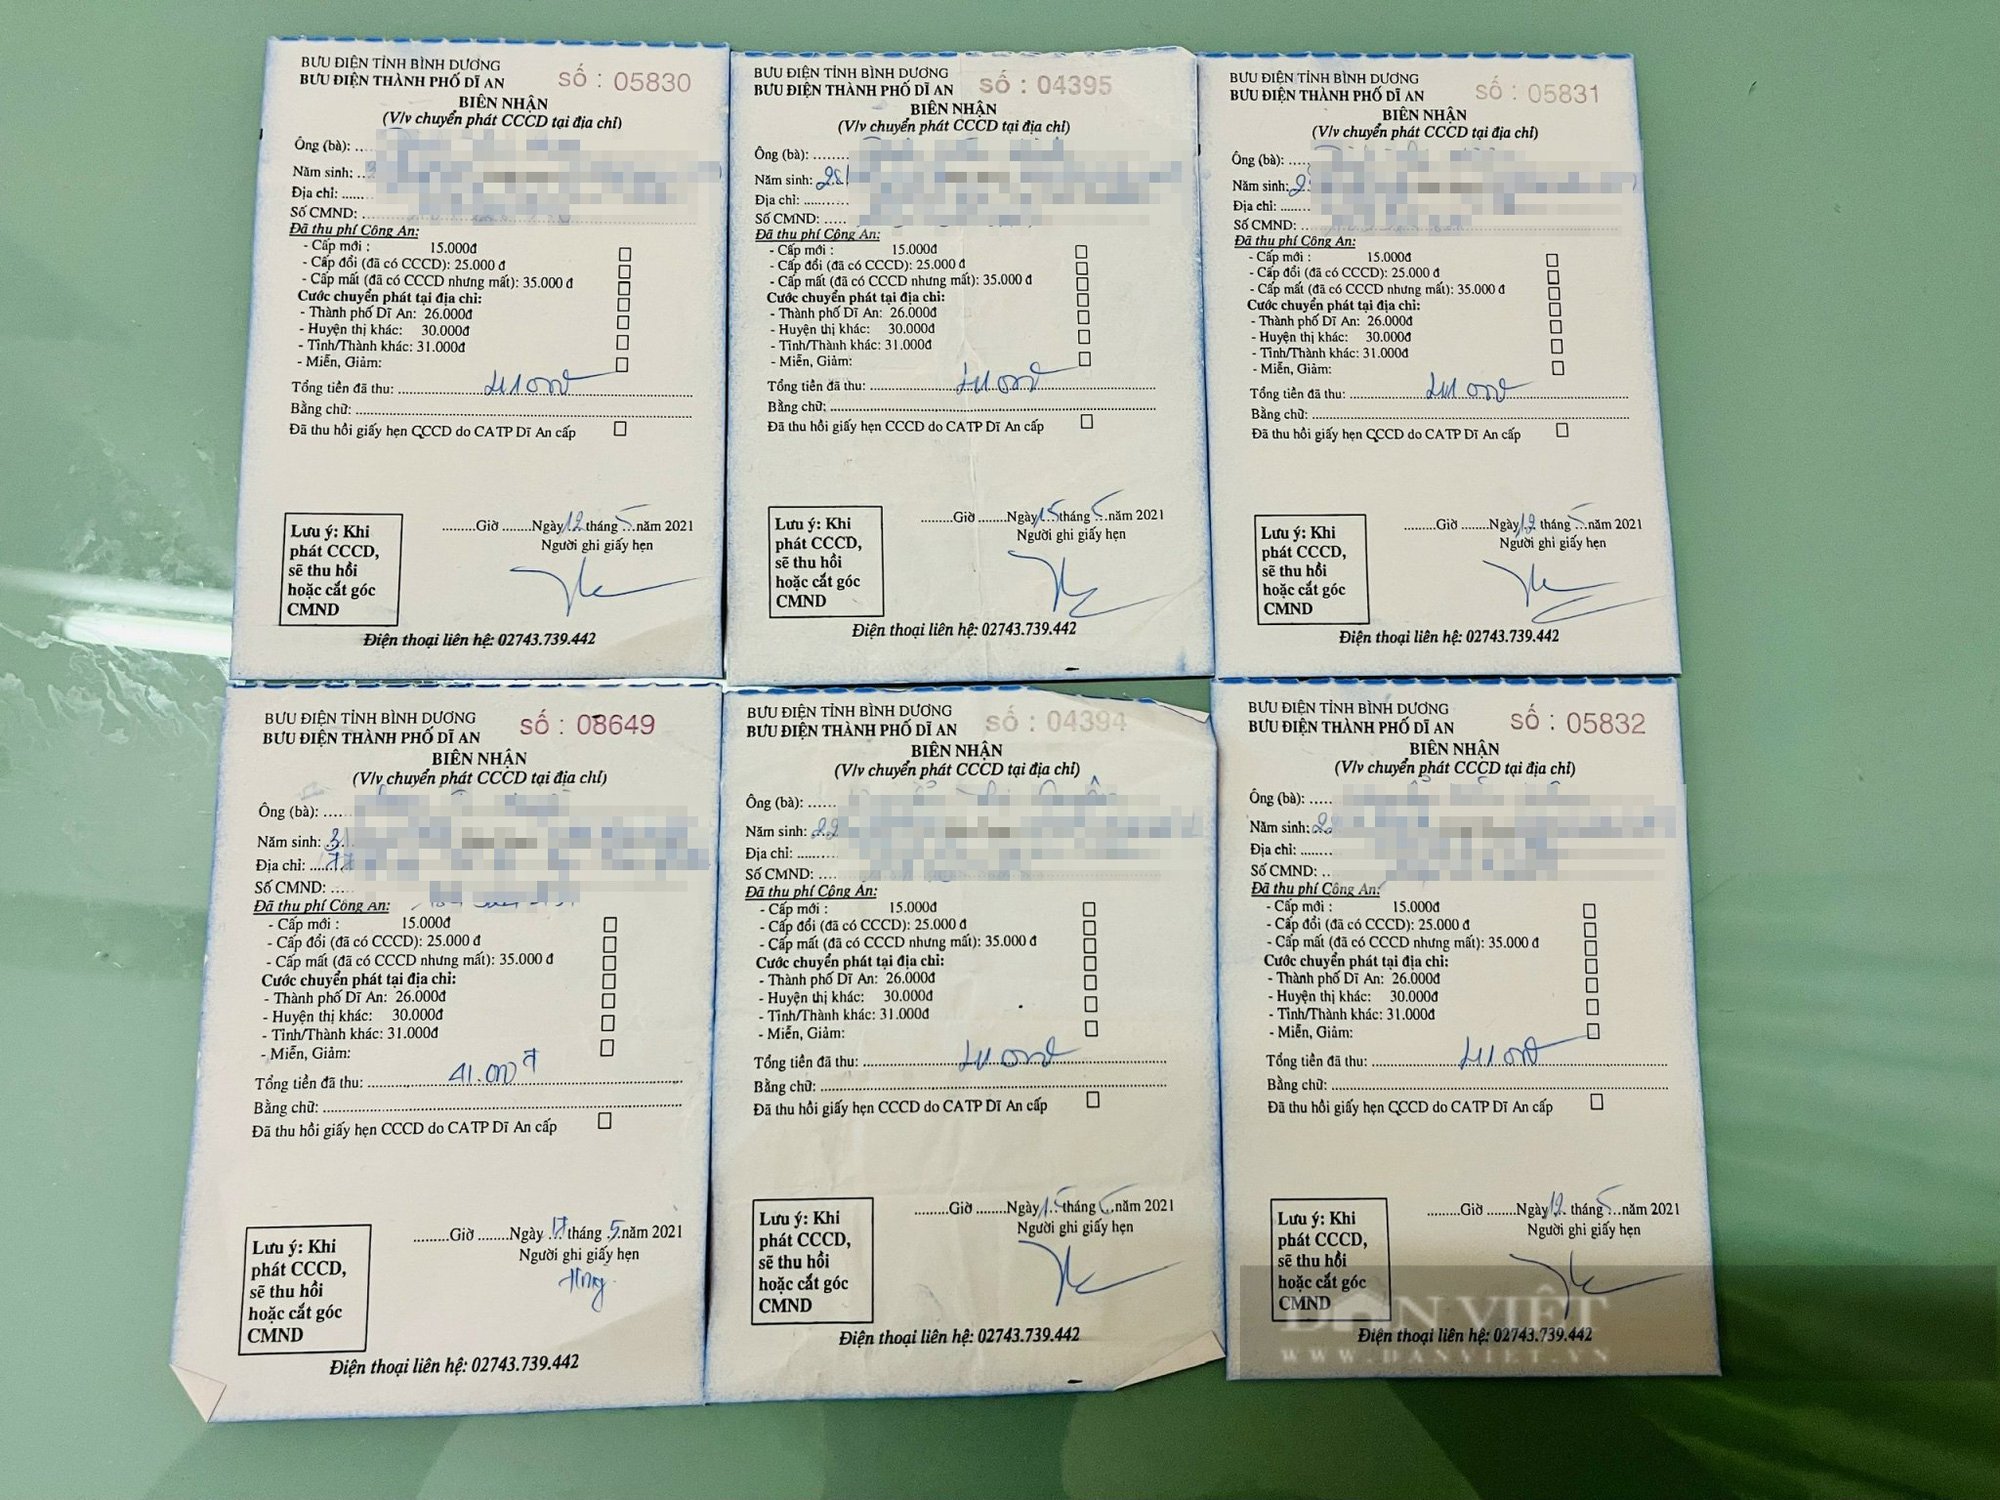 BƯU ĐIỆN TỈNH BÌNH DƯƠNG
BƯU ĐIỆN THÀNH PHỐ DĨ AN
SỐ : 05830
BIÊN NHẬN
(V/v chuyển phát CCCD tại địa chỉ)
Ông (bà): ...
Năm sinh: ...
Địa chỉ: ......
Số CMND: ...
Đã thu phí Công An:
- Cấp mới : 15.000đ
- Cấp đổi (đã có CCCD): 25.000 đ
- Cấp mất (đã có CCCD nhưng mất): 35.000 đ
Cước chuyển phát tại địa chỉ:
- Thành phố Dĩ An: 26.000đ
- Huyện thị khác: 30.000đ
- Tỉnh/Thành khác: 31.000đ
- Miễn, Giảm:
Tổng tiền đã thu: 41.000đ
Bằng chữ:
Đã thu hồi giấy hẹn CCCD do CATP Dĩ An cấp
Lưu ý: Khi
phát CCCD,
sẽ thu hồi
hoặc cắt góc
CMND
........Giờ ........Ngày 12 tháng 5 năm 2021
Người ghi giấy hẹn
Điện thoại liên hệ: 02743.739.442
BƯU ĐIỆN TỈNH BÌNH DƯƠNG
BƯU ĐIỆN THÀNH PHỐ DĨ AN
SỐ : 04395
BIÊN NHẬN
(V/v chuyển phát CCCD tại địa chỉ)
Ông (bà): .......
Năm sinh: 28/
Địa chỉ: .........
Số CMND: ....
Đã thu phí Công An:
- Cấp mới : 15.000đ
- Cấp đổi (đã có CCCD): 25.000 đ
- Cấp mất (đã có CCCD nhưng mất): 35.000 đ
Cước chuyển phát tại địa chỉ:
- Thành phố Dĩ An: 26.000đ
- Huyện thị khác: 30.000đ
- Tỉnh/Thành khác: 31.000đ
- Miễn, Giảm:
Tổng tiền đã thu: 41.000đ
Bằng chữ:
Đã thu hồi giấy hẹn CCCD do CATP Dĩ An cấp
Lưu ý: Khi
phát CCCD,
sẽ thu hồi
hoặc cắt góc
CMND
........Giờ ........Ngày 15 tháng 5 năm 2021
Người ghi giấy hẹn
Điện thoại liên hệ: 02743.739.442
BƯU ĐIỆN TỈNH BÌNH DƯƠNG
BƯU ĐIỆN THÀNH PHỐ DĨ AN
SỐ : 05831
BIÊN NHẬN
(V/v chuyển phát CCCD tại địa chỉ)
Ông (bà): ....
Năm sinh:
Địa chỉ: ......
Số CMND:
Đã thu phí Công An:
- Cấp mới : 15.000đ
- Cấp đổi (đã có CCCD): 25.000 đ
- Cấp mất (đã có CCCD nhưng mất): 35.000 đ
Cước chuyển phát tại địa chỉ:
- Thành phố Dĩ An: 26.000đ
- Huyện thị khác: 30.000đ
- Tỉnh/Thành khác: 31.000đ
- Miễn, Giảm:
Tổng tiền đã thu: 41.000đ
Bằng chữ:
Đã thu hồi giấy hẹn CCCD do CATP Dĩ An cấp
Lưu ý: Khi
phát CCCD,
sẽ thu hồi
hoặc cắt góc
CMND
........Giờ ........Ngày 12 tháng 5 năm 2021
Người ghi giấy hẹn
Điện thoại liên hệ: 02743.739.442
BƯU ĐIỆN TỈNH BÌNH DƯƠNG
BƯU ĐIỆN THÀNH PHỐ DĨ AN
SỐ : 08649
BIÊN NHẬN
(V/v chuyển phát CCCD tại địa chỉ)
Ông (bà): ....
Năm sinh:
Địa chỉ:
Số CMND: ....
Đã thu phí Công An:
- Cấp mới : 15.000đ
- Cấp đổi (đã có CCCD): 25.000 đ
- Cấp mất (đã có CCCD nhưng mất): 35.000 đ
Cước chuyển phát tại địa chỉ:
- Thành phố Dĩ An: 26.000đ
- Huyện thị khác: 30.000đ
- Tỉnh/Thành khác: 31.000đ
- Miễn, Giảm:
Tổng tiền đã thu: 41.000đ
Bằng chữ:
Đã thu hồi giấy hẹn CCCD do CATP Dĩ An cấp
Lưu ý: Khi
phát CCCD,
sẽ thu hồi
hoặc cắt góc
CMND
........Giờ ........Ngày 17 tháng 5 năm 2021
Người ghi giấy hẹn
Điện thoại liên hệ: 02743.739.442
BƯU ĐIỆN TỈNH BÌNH DƯƠNG
BƯU ĐIỆN THÀNH PHỐ DĨ AN
SỐ : 04394
BIÊN NHẬN
(V/v chuyển phát CCCD tại địa chỉ)
Ông (bà): .....
Năm sinh: 22
Địa chỉ: .......
Số CMND: ...
Đã thu phí Công An:
- Cấp mới : 15.000đ
- Cấp đổi (đã có CCCD): 25.000 đ
- Cấp mất (đã có CCCD nhưng mất): 35.000 đ
Cước chuyển phát tại địa chỉ:
- Thành phố Dĩ An: 26.000đ
- Huyện thị khác: 30.000đ
- Tỉnh/Thành khác: 31.000đ
- Miễn, Giảm:
Tổng tiền đã thu: 41.000đ
Bằng chữ:
Đã thu hồi giấy hẹn CCCD do CATP Dĩ An cấp
Lưu ý: Khi
phát CCCD,
sẽ thu hồi
hoặc cắt góc
CMND
........Giờ ........Ngày 15 tháng 5 năm 2021
Người ghi giấy hẹn
Điện thoại liên hệ: 02743.739.442
BƯU ĐIỆN TỈNH BÌNH DƯƠNG
BƯU ĐIỆN THÀNH PHỐ DĨ AN
SỐ : 05832
BIÊN NHẬN
(V/v chuyển phát CCCD tại địa chỉ)
Ông (bà): ....
Năm sinh:
Địa chỉ: ......
Số CMND: ..
Đã thu phí Công An:
- Cấp mới : 15.000đ
- Cấp đổi (đã có CCCD): 25.000 đ
- Cấp mất (đã có CCCD nhưng mất): 35.000 đ
Cước chuyển phát tại địa chỉ:
- Thành phố Dĩ An: 26.000đ
- Huyện thị khác: 30.000đ
- Tỉnh/Thành khác: 31.000đ
- Miễn, Giảm:
Tổng tiền đã thu: 41.000đ
Bằng chữ:
Đã thu hồi giấy hẹn CCCD do CATP Dĩ An cấp
Lưu ý: Khi
phát CCCD,
sẽ thu hồi
hoặc cắt góc
CMND
........Giờ ........Ngày 12 tháng 5 năm 2021
Người ghi giấy hẹn
Điện thoại liên hệ: 02743.739.442
DÂN VIỆT
WWW.DANVIET.VN